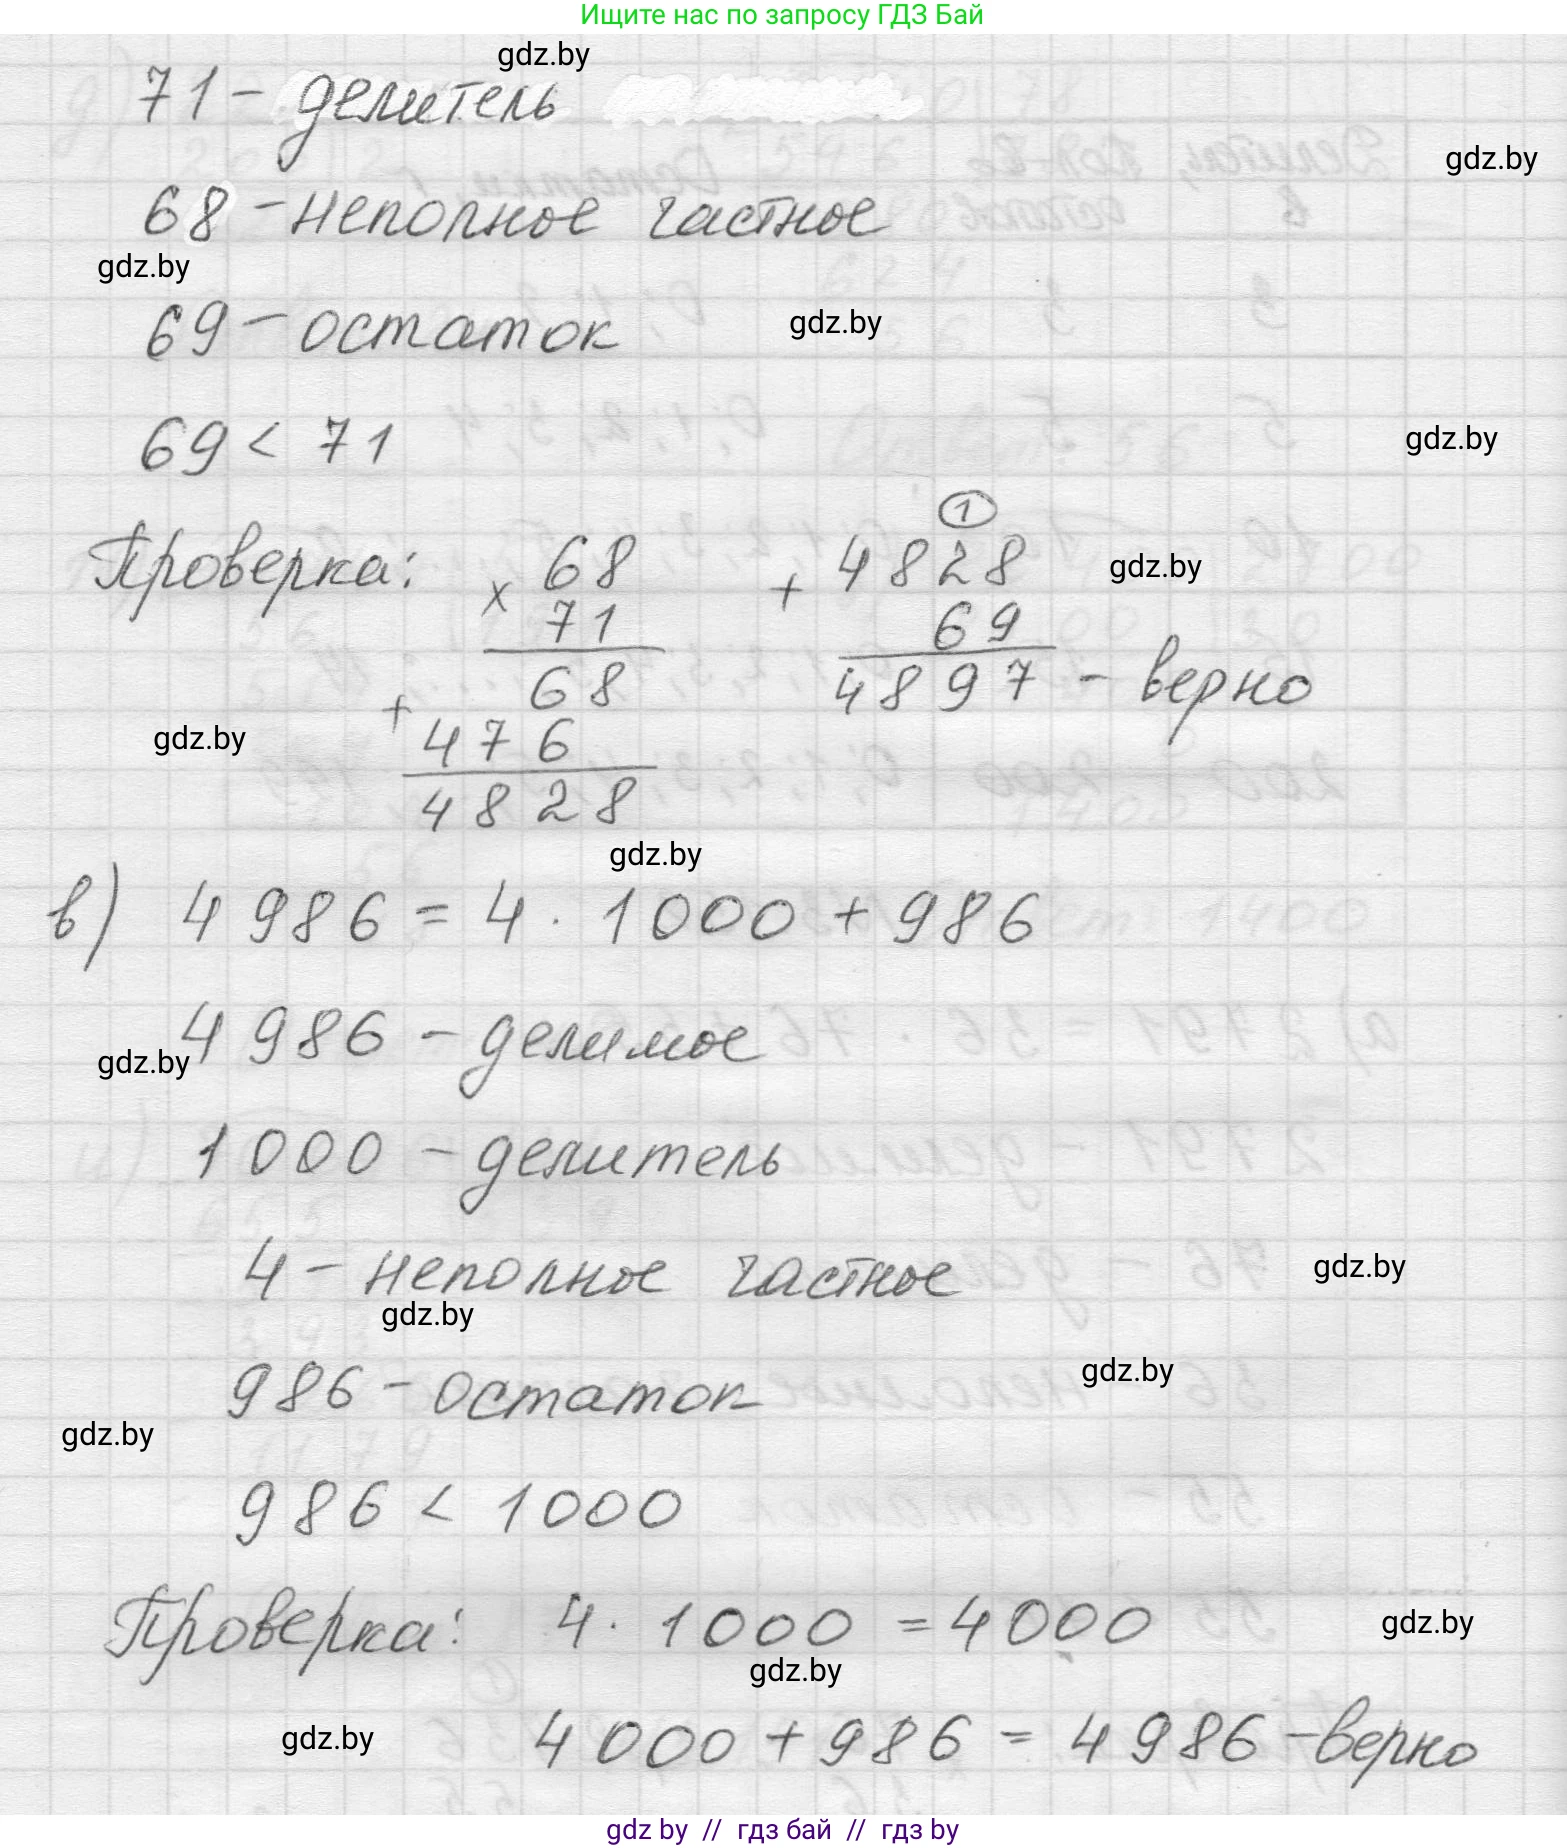 Ищите нас по запросу ГДЗ Бай
gdz.by
71 - делитель
gdz.by
68 - неполное частное
gdz.by
69 - остаток
gdz.by
69 < 71
gdz.by
1
Проверка: × 68 + 4828
gdz.by
71 69
68 4897 - верно
+ 476
gdz.by
4828
gdz.by
в) 4986 = 4 · 1000 + 986
4986 - делимое
gdz.by
1000 - делитель
4 - неполное частное
gdz.by
gdz.by
986 - остаток
gdz.by
gdz.by
986 < 1000
Проверка: 4 · 1000 = 4000
gdz.by
gdz.by
4000 + 986 = 4986 - верно
gdz.by
gdz by // гдз бай // гдз by